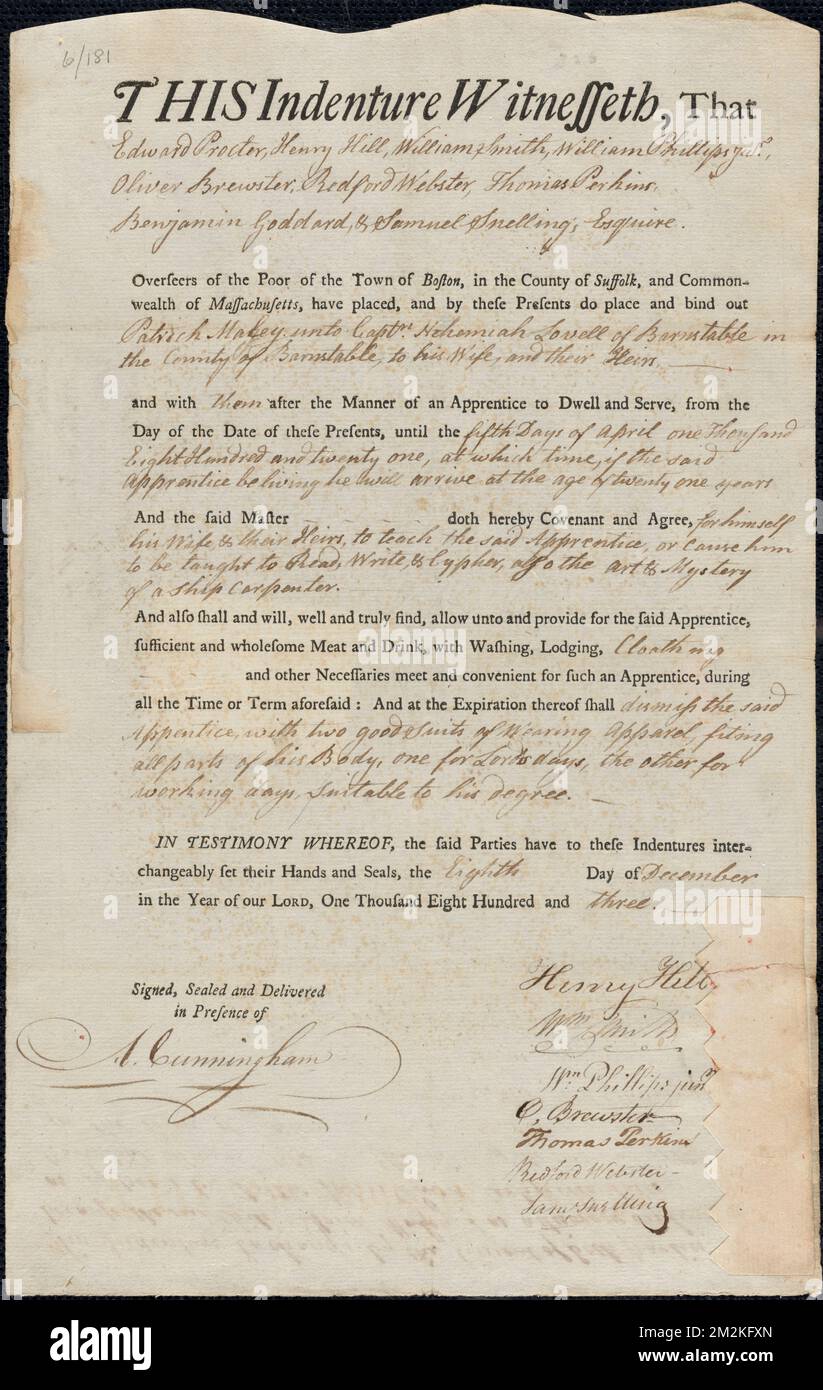 6/181
THIS Indenture Witnesseth, That
Edward Procter, Henry Hill, William Smith, William Phillips junr,
Oliver Brewster, Redford Webster, Thomas Perkins,
Benjamin Goddard, & Samuel Snelling, Esquire.
Overseers of the Poor of the Town of Boston, in the County of Suffolk, and Common-
wealth of Massachusetts, have placed, and by these Presents do place and bind out
Patrick Maley unto Captn. Nehemiah Lovell of Barnstable in
the County of Barnstable, to his Wife, and their Heirs,
and with them after the Manner of an Apprentice to Dwell and Serve, from the
Day of the Date of these Presents, until the fifth Days of April one Thousand
Eight Hundred and twenty one, at which time, if the said
Apprentice be living he will arrive at the age of twenty one years
And the said Master doth hereby Covenant and Agree, for himself
his Wife & their Heirs, to teach the said Apprentice, or Cause him
to be taught to Read, Write, & Cypher, also the art & Mystery
of a Ship Carpenter.
And also shall and will, well and truly find, allow unto and provide for the said Apprentice,
sufficient and wholesome Meat and Drink, with Washing, Lodging, Cloathing
and other Necessaries meet and convenient for such an Apprentice, during
all the Time or Term aforesaid : And at the Expiration thereof shall dismiss the said
Apprentice, with two good Suits of Wearing Apparel, fiting
all parts of his Body, one for Lords days, the other for
working days, suitable to his degree.
IN TESTIMONY WHEREOF, the said Parties have to these Indentures inter-
changeably set their Hands and Seals, the Eighth Day of December
in the Year of our LORD, One Thousand Eight Hundred and three.
Signed, Sealed and Delivered
in Presence of
A. Cunningham
Henry Hill
Wm Smith
Wm Phillips junr
O. Brewster
Thomas Perkins
Redford Webster
Saml Snelling
alamy
Image ID: 2M2KFXN
www.alamy.com